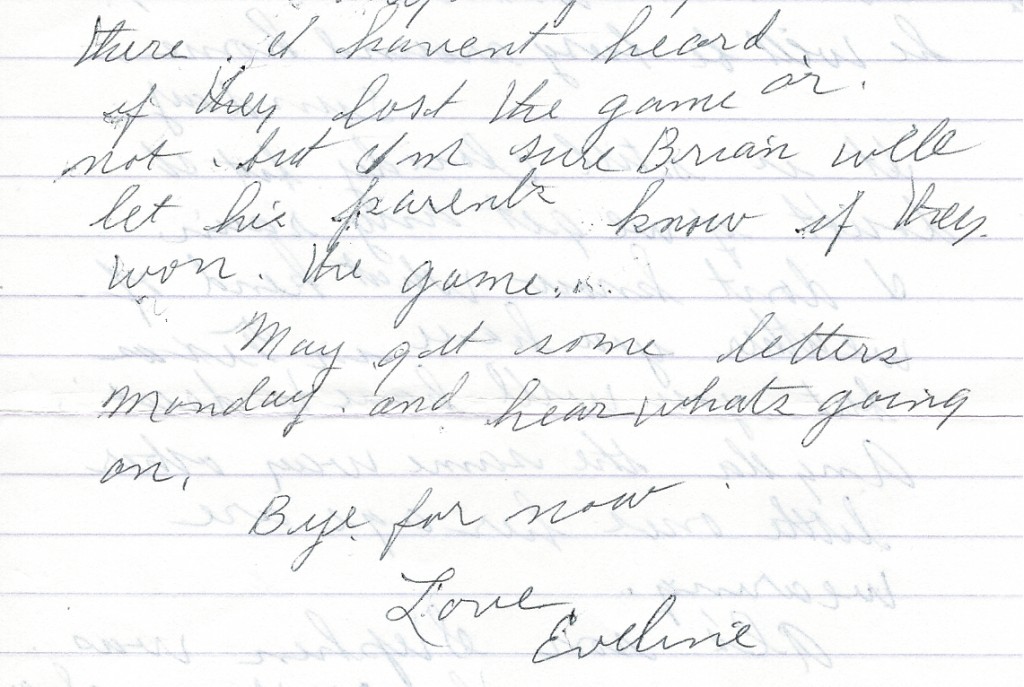 there. I havent heard
if they lost the game or.
not. but I'm sure Brian will
let his parents know if they.
won. the game...
May get some letters
Monday. and hear whats going
on.
Bye. for now.
Love,
Eveline